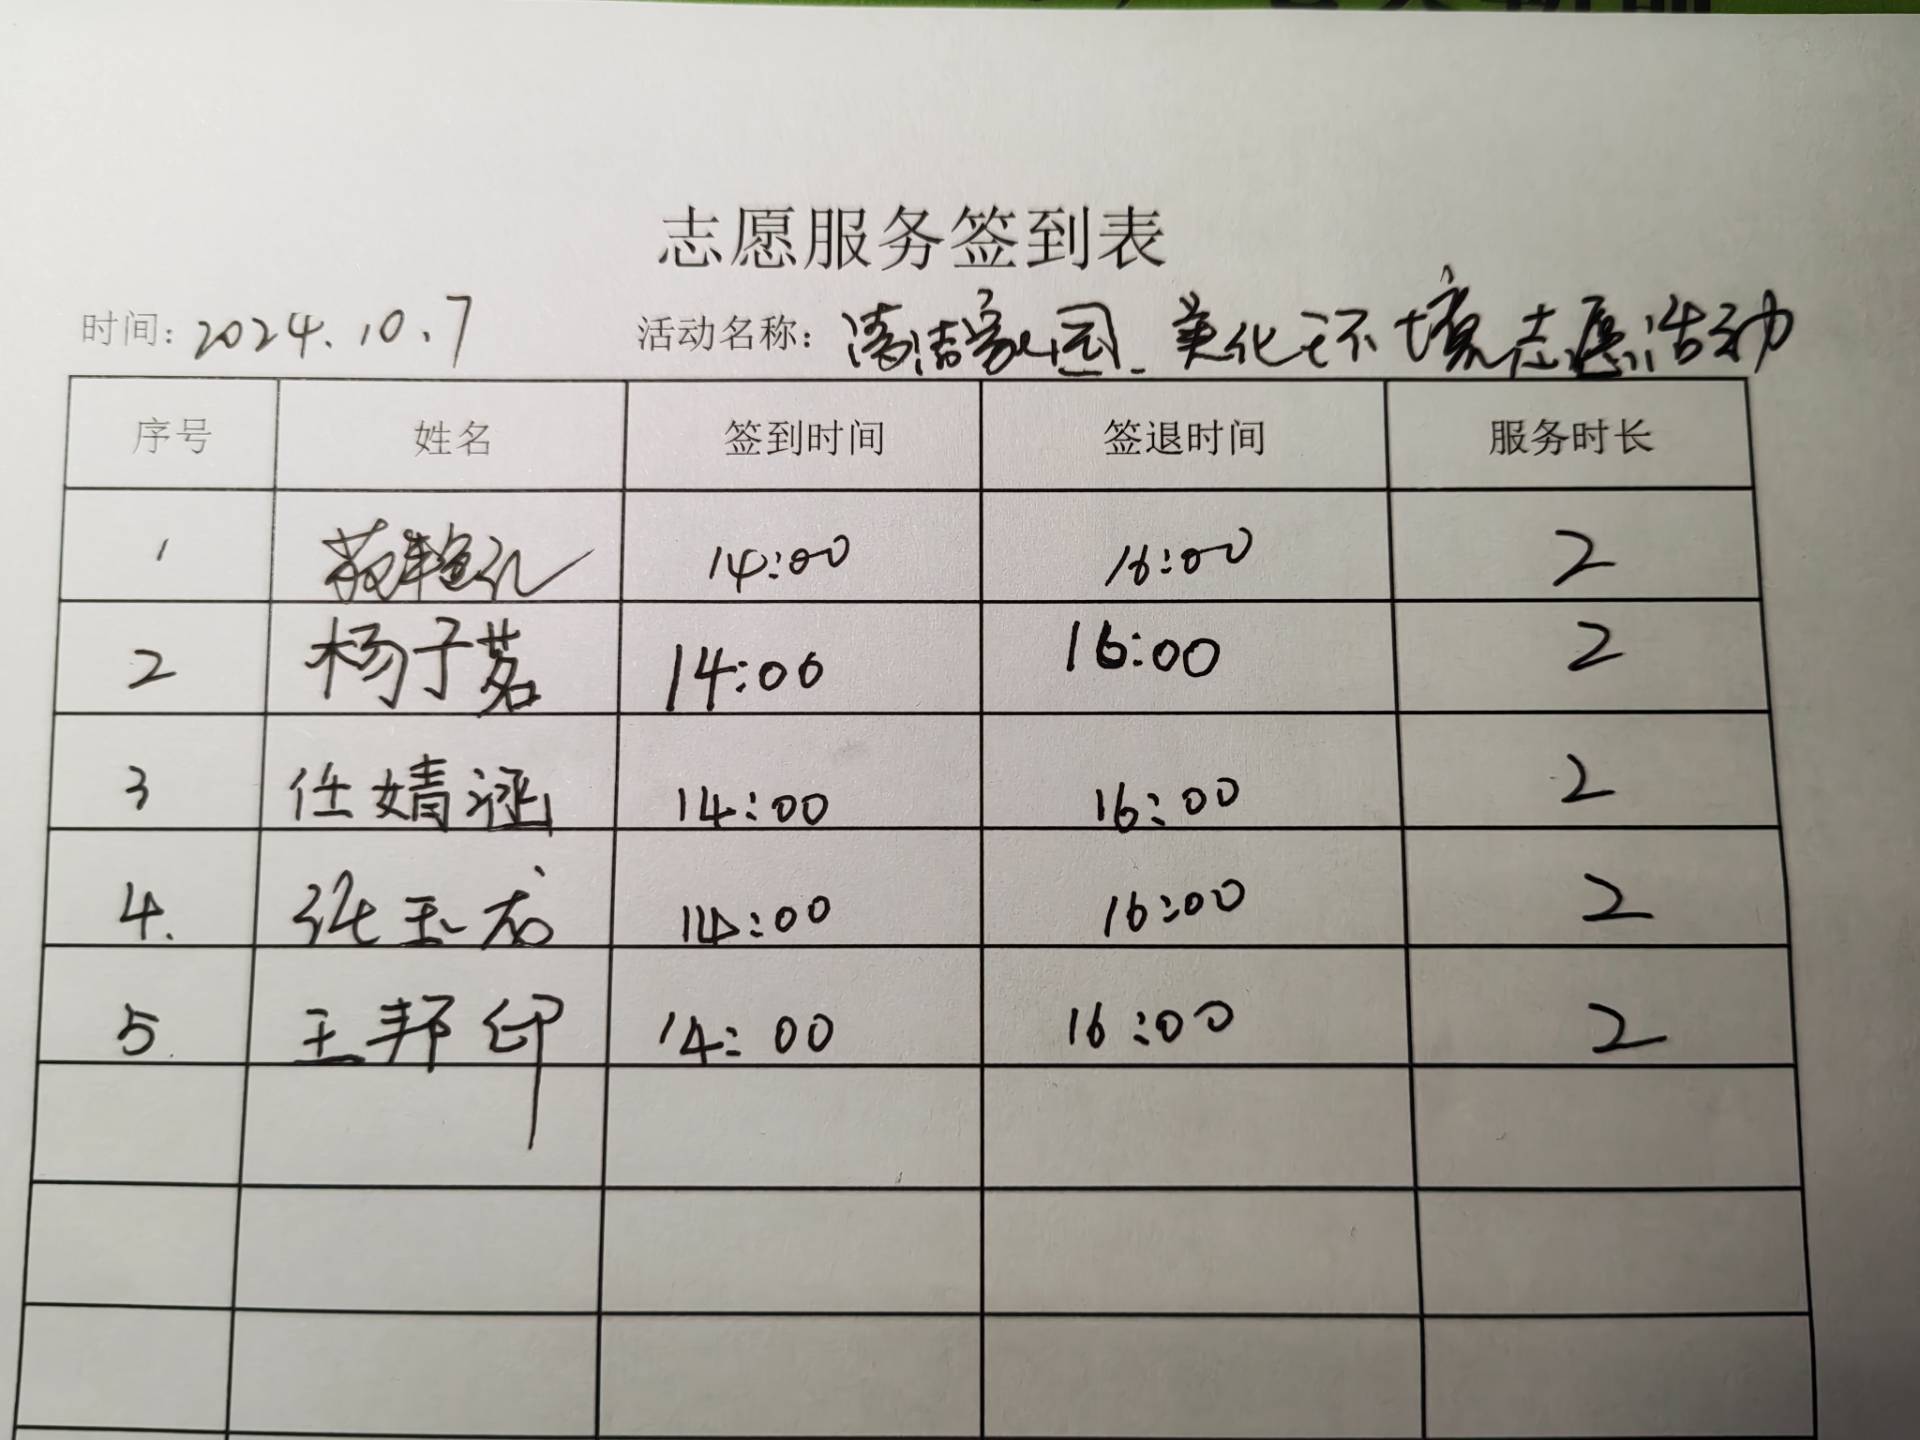 志愿服务签到表
时间：2024.10.7 活动名称：清洁家园.美化环境志愿活动
序号 姓名 签到时间 签退时间 服务时长
1 14:00 16:00 2
2 杨子茗 14:00 16:00 2
3 任婧涵 14:00 16:00 2
4. 张玉龙 14:00 16:00 2
5 王邦印 14:00 16:00 2